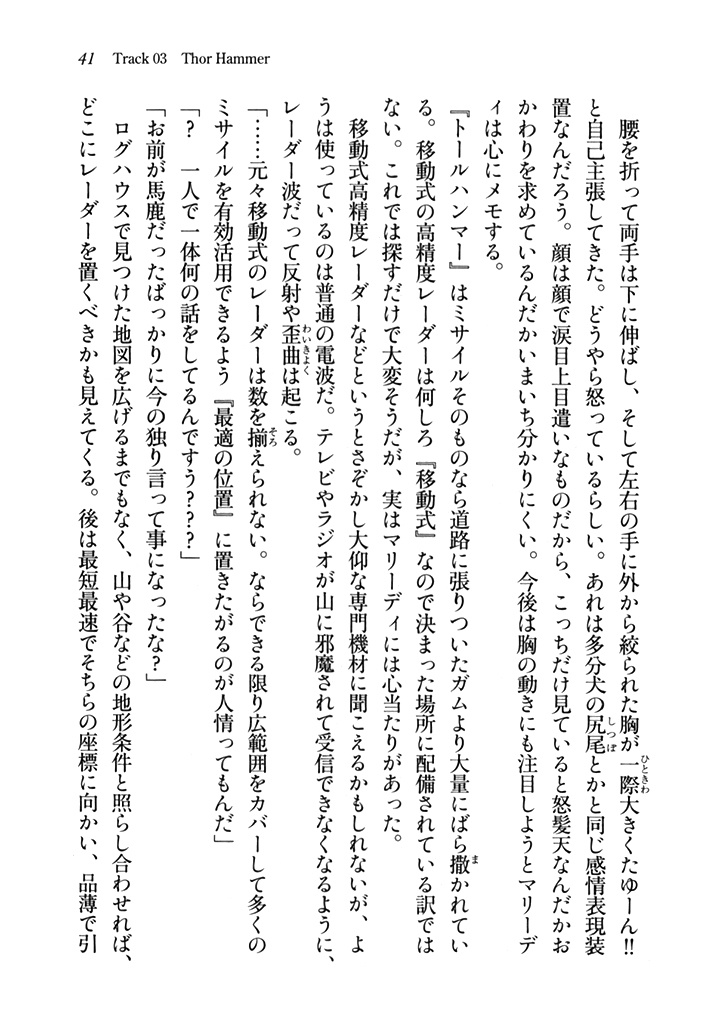 41　Track 03　Thor Hammer
　腰を折って両手は下に伸ばし、そして左右の手に外から絞られた胸が一際大きくたゆーん!!
と自己主張してきた。どうやら怒っているらしい。あれは多分犬の尻尾とかと同じ感情表現装
置なんだろう。顔は顔で涙目上目遣いなものだから、こっちだけ見ていると怒髪天なんだかお
かわりを求めているんだかいまいち分かりにくい。今後は胸の動きにも注目しようとマリーデ
ィは心にメモする。
『トールハンマー』はミサイルそのものなら道路に張りついたガムより大量にばら撒かれてい
る。移動式の高精度レーダーは何しろ『移動式』なので決まった場所に配備されている訳では
ない。これでは探すだけで大変そうだが、実はマリーディには心当たりがあった。
　移動式高精度レーダーなどというとさぞかし大仰な専門機材に聞こえるかもしれないが、よ
うは使っているのは普通の電波だ。テレビやラジオが山に邪魔されて受信できなくなるように、
レーダー波だって反射や歪曲は起こる。
「……元々移動式のレーダーは数を揃えられない。ならできる限り広範囲をカバーして多くの
ミサイルを有効活用できるよう『最適の位置』に置きたがるのが人情ってもんだ」
「?　一人で一体何の話をしてるんですう???」
「お前が馬鹿だったばっかりに今の独り言って事になったな?」
　ログハウスで見つけた地図を広げるまでもなく、山や谷などの地形条件と照らし合わせれば、
どこにレーダーを置くべきかも見えてくる。後は最短最速でそちらの座標に向かい、品薄で引